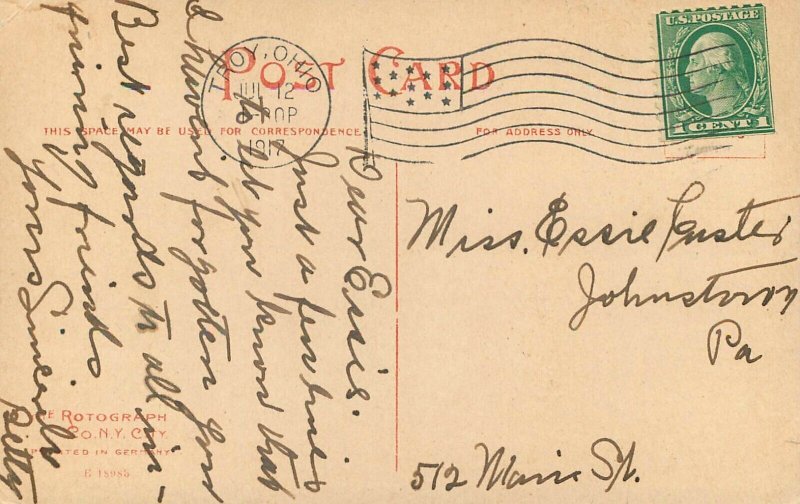 POST CARD
THIS SPACE MAY BE USED FOR CORRESPONDENCE
FOR ADDRESS ONLY
TROY, OHIO
JUL 12
30P
1917
U.S. POSTAGE
1 CENT 1
Dear Essie.
Just a few lines
to let you know that
I haven't forgotten you
Best regards to all in-
quiring friends
Yours Sincerely
Betty
Miss. Essie Custer
Johnstown
Pa
512 Main St.
THE ROTOGRAPH
CO. N.Y. CITY
PRINTED IN GERMANY
E 18985